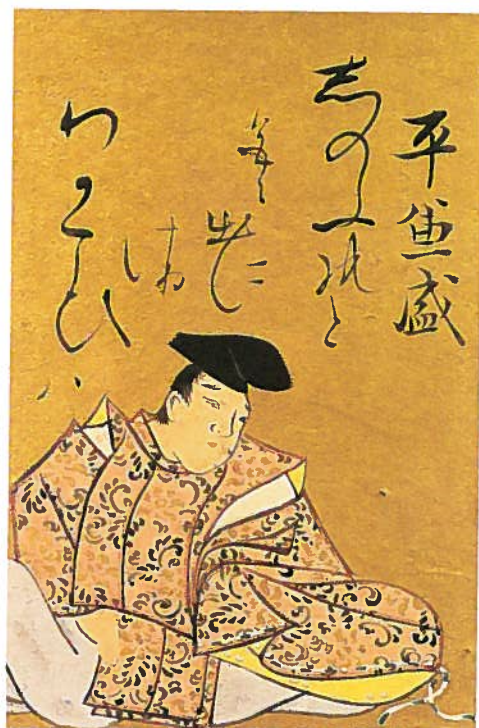 平兼盛
志のふれと
色に
出に
けり
わかこひハ